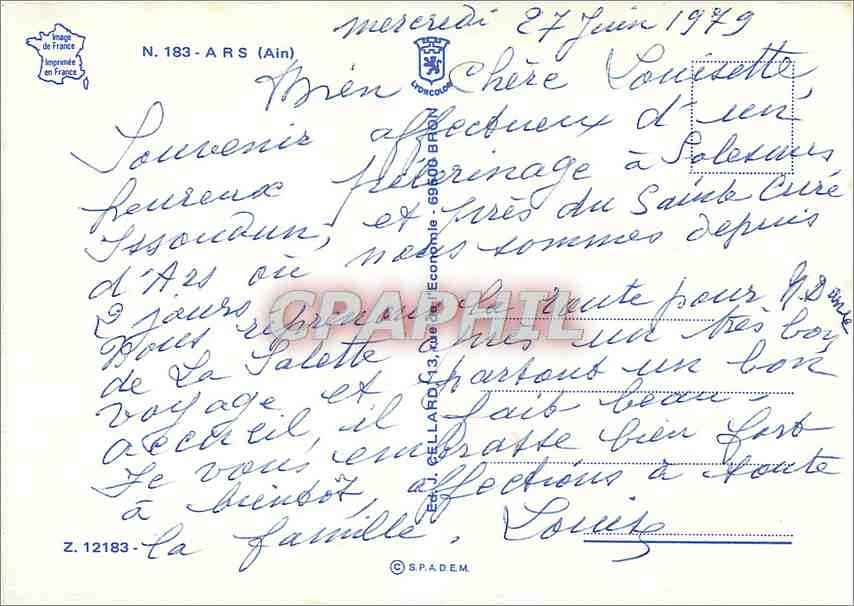 mercredi 27 Juin 1979
Image
de France
Imprimée
en France
N. 183 - ARS (Ain)
LYONCOLOR
Bien Chère Louisette,
Souvenir affectueux d'un
heureux pèlerinage à Solesmes
Issoudun, et près du Saint Curé
d'Ars où nous sommes depuis
2 jours
Nous reprenons la route pour N. Dame
de La Salette après un très bon
voyage et partout un bon
accueil, il fait beau.
Je vous embrasse bien fort
à bientôt, affections à toute
la famille. Louise
Ed. J. CELLARD, 13, rue de l'Economie - 69500 BRON
CPARPHIL
Z. 12183 -
© S.P.A.D.E.M.